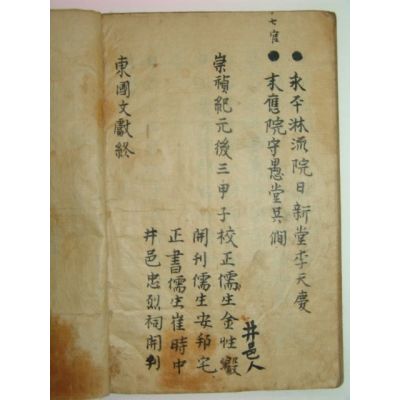 院日新堂李天慶
應院守愚堂
井邑人
崇禎紀元後三甲子校正儒生金性
開刊儒生安邦宅
正書儒生崔時中
井邑忠烈祠開刊
東國文獻終